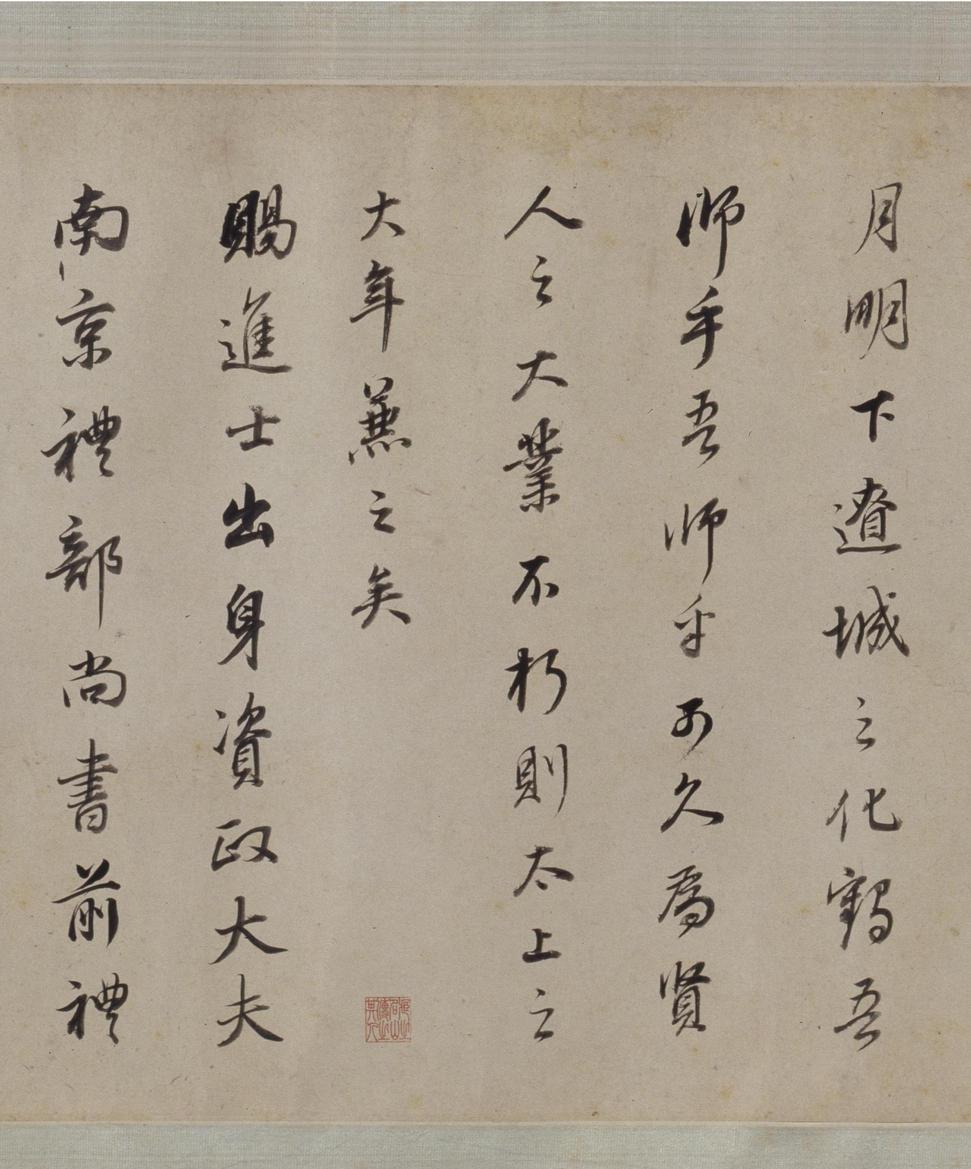 月明下遼城之化鶴吾
師乎吾師乎可久為賢
人之大業不朽則太上之
大年兼之矣
賜進士出身資政大夫
南京禮部尚書前禮